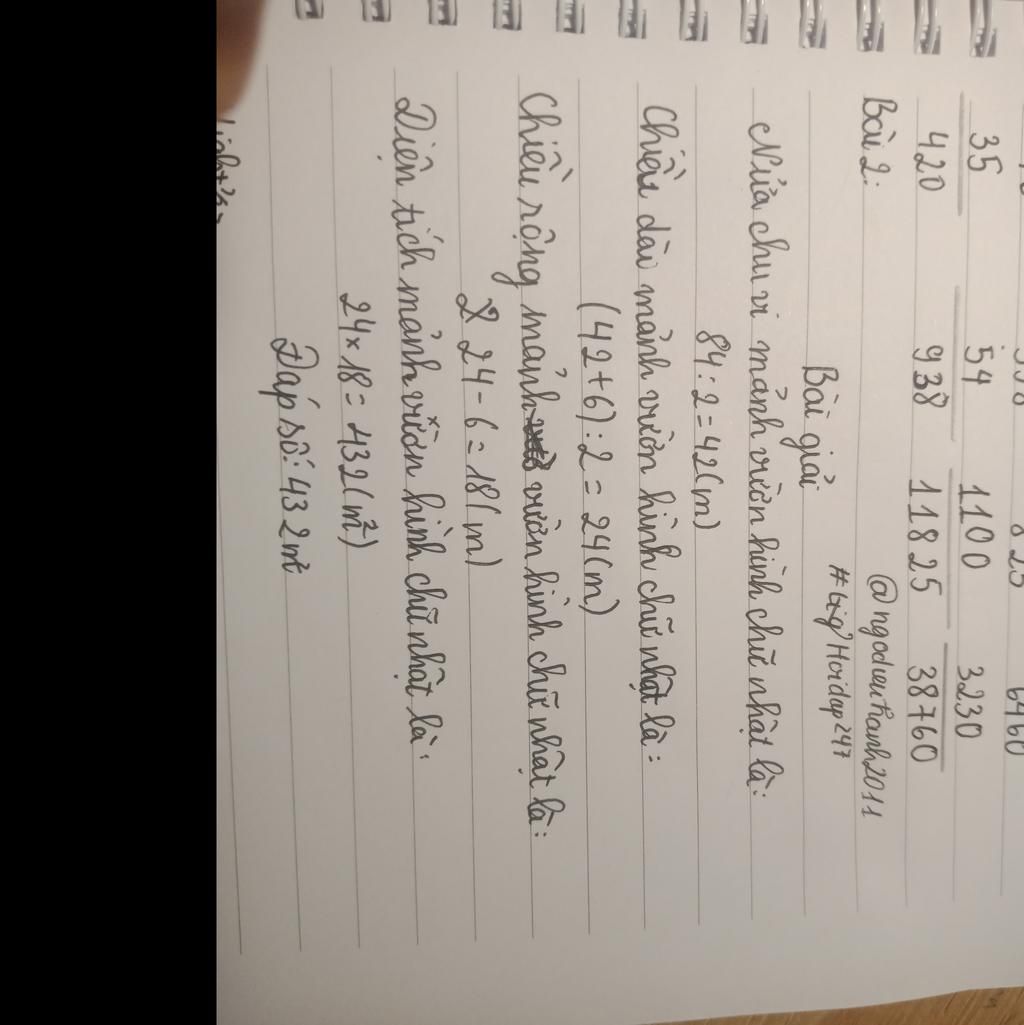 6460
35 54 1100 3230
420 938 11825 38760
Bài 2: @ngodieukhanh2011
Bài giải #big'Hoidap247
Nửa chu vi mảnh vườn hình chữ nhật là:
84 : 2 = 42(m)
Chiều dài mảnh vườn hình chữ nhật là:
(42+6) : 2 = 24(m)
Chiều rộng mảnh vườn hình chữ nhật là:
24 - 6 = 18(m)
Diện tích mảnh vườn hình chữ nhật là:
24 × 18 = 432(m²)
Đáp số: 432m²